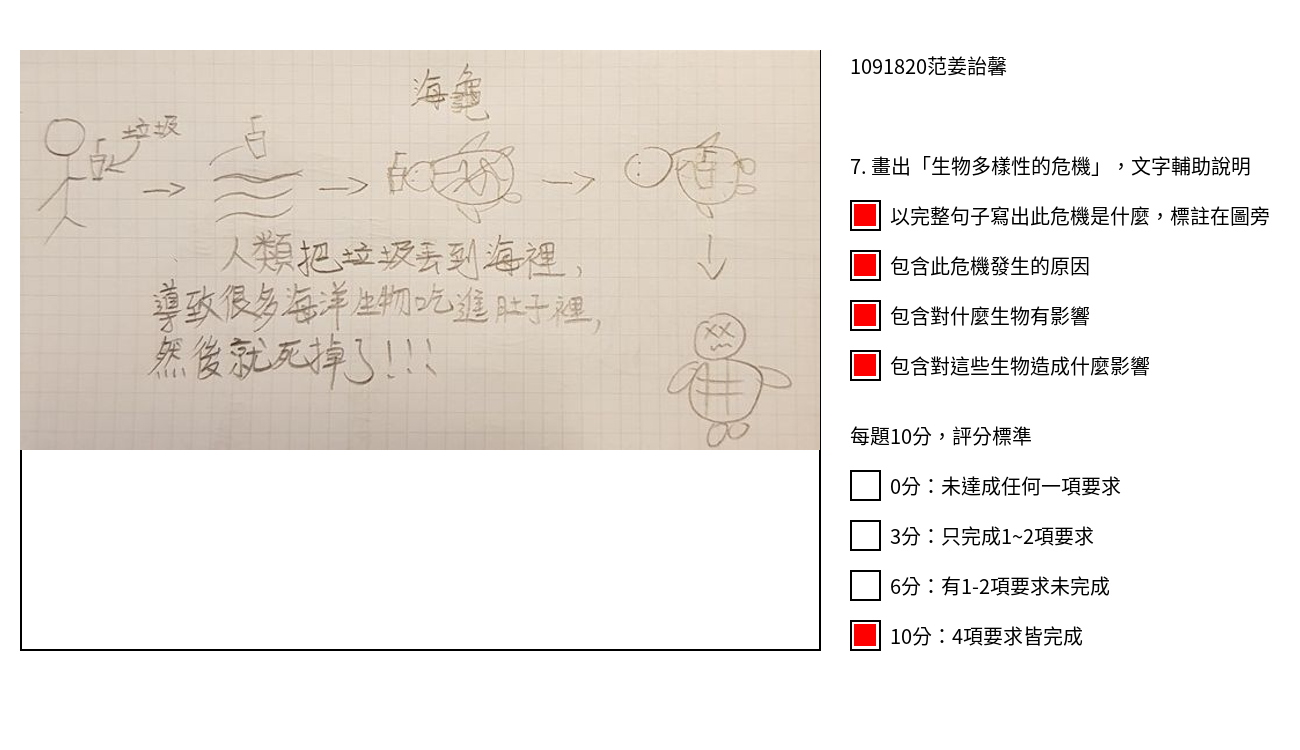 海龜
垃圾
人類把垃圾丟到海裡，
導致很多海洋生物吃進肚子裡，
然後就死掉了!!!
1091820范姜詒馨
7. 畫出「生物多樣性的危機」，文字輔助說明
以完整句子寫出此危機是什麼，標註在圖旁
包含此危機發生的原因
包含對什麼生物有影響
包含對這些生物造成什麼影響
每題10分，評分標準
0分：未達成任何一項要求
3分：只完成1~2項要求
6分：有1-2項要求未完成
10分：4項要求皆完成